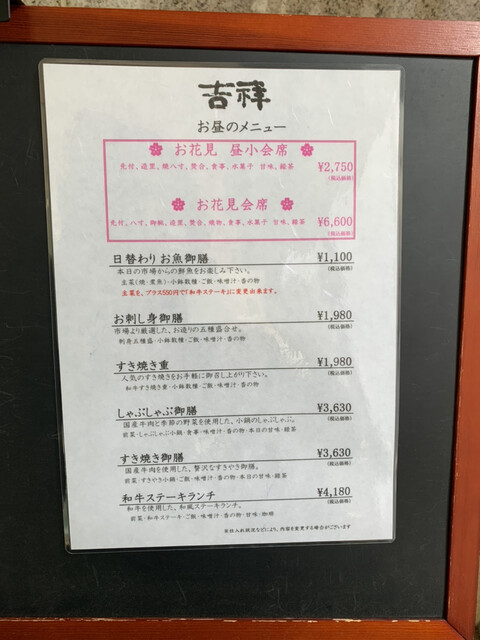 吉祥
お昼のメニュー
お花見 昼小会席 ¥2,750
先付、造里、焼八寸、焚合、食事、水菓子 甘味、銘茶 (税込価格)
お花見会席 ¥6,600
先付、八寸、御椀、造里、焚合、焼物、食事、水菓子 甘味、銘茶 (税込価格)
日替わりお魚御膳 ¥1,100
本日の市場からの鮮魚をお楽しみ下さい。 (税込価格)
主菜(焼・煮魚)・小鉢数種・ご飯・味噌汁・香の物
主菜を、プラス550円で「和牛ステーキ」に変更出来ます。
お刺し身御膳 ¥1,980
市場より厳選した、お造りの五種盛合せ。 (税込価格)
刺身五種盛・小鉢数種・ご飯・味噌汁・香の物
すき焼き重 ¥1,980
人気のすき焼きをお手軽に御召し上がり下さい。 (税込価格)
和牛すき焼き重・小鉢数種・ご飯・味噌汁・香の物
しゃぶしゃぶ御膳 ¥3,630
国産牛肉と季節の野菜を使用した、小鍋のしゃぶしゃぶ。 (税込価格)
前菜・しゃぶしゃぶ小鍋・食事・味噌汁・香の物・本日の甘味・銘茶
すき焼き御膳 ¥3,630
国産牛肉を使用した、贅沢なすきやき御膳。 (税込価格)
前菜・すきやき小鍋・ご飯・味噌汁・香の物・本日の甘味・銘茶
和牛ステーキランチ ¥4,180
和牛を使用した、和風ステーキランチ。 (税込価格)
前菜・和牛ステーキ・ご飯・味噌汁・香の物・甘味・珈琲
※仕入れ状況などにより、内容を変更する場合がございます